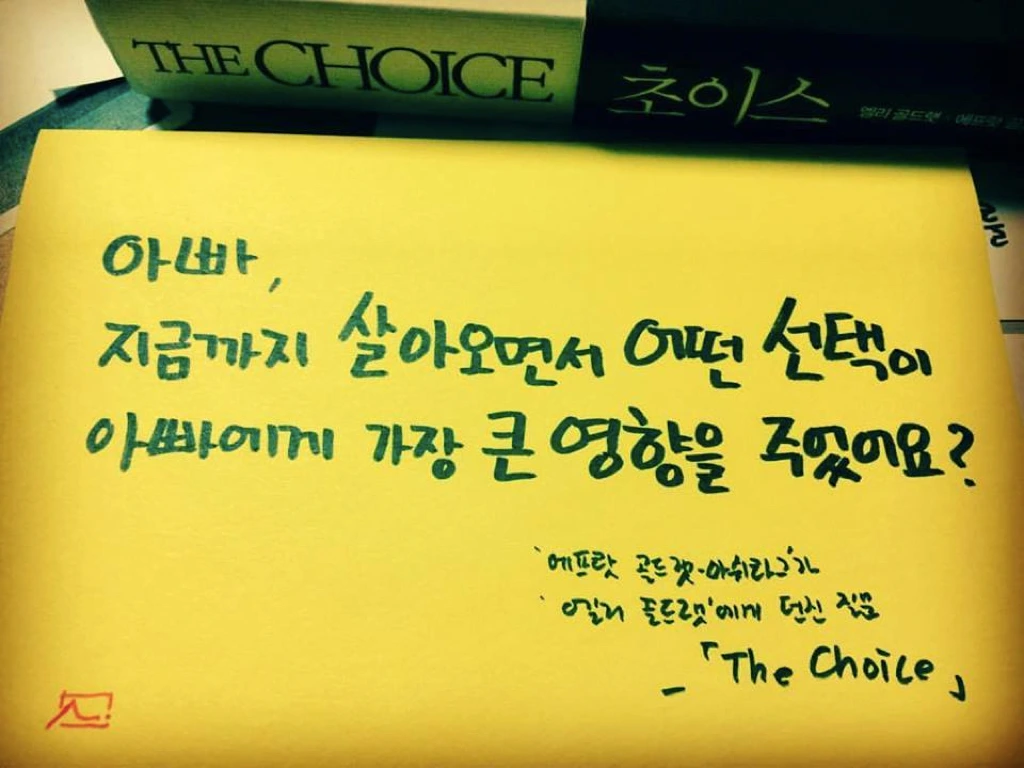 THE CHOICE 초이스 엘리 골드랫 · 에프랏 골
아빠,
지금까지 살아오면서 어떤 선택이
아빠에게 가장 큰 영향을 주었어요?
'에프랏 골드랫-아쉬라그'가
'엘리 골드랫'에게 던진 질문
- 「The Choice」